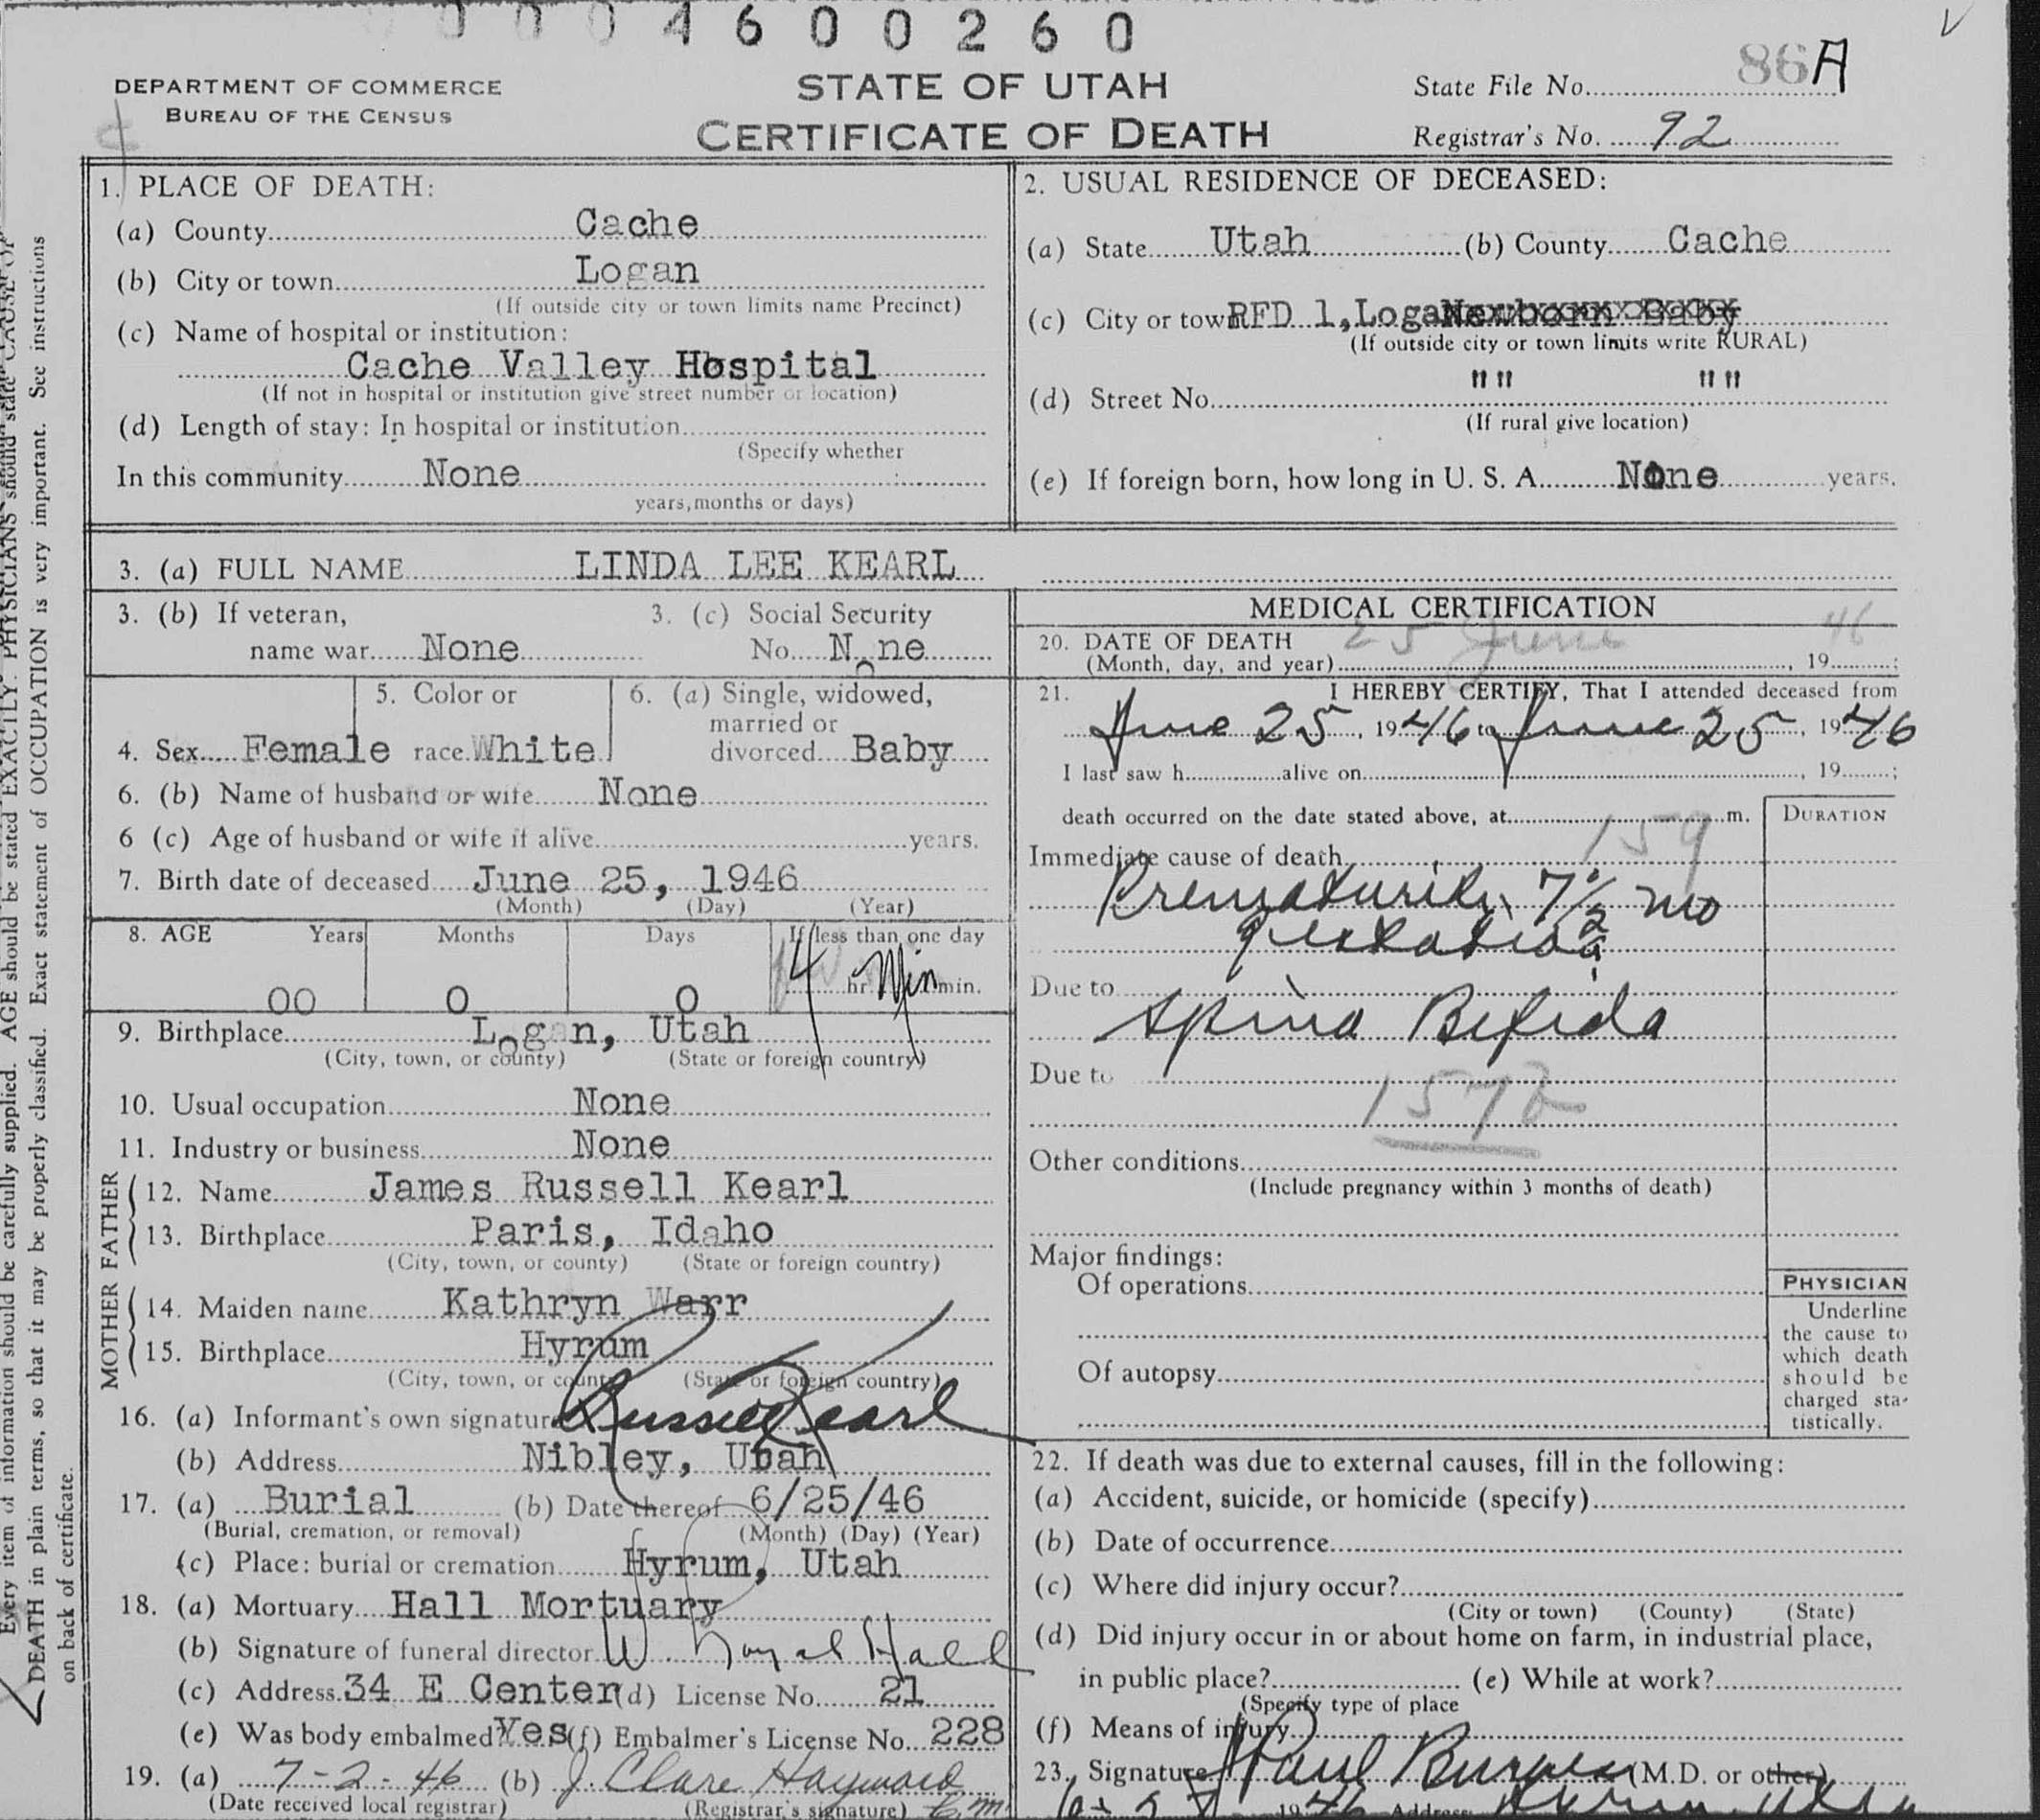 0004600260
86A
DEPARTMENT OF COMMERCE
BUREAU OF THE CENSUS
STATE OF UTAH
CERTIFICATE OF DEATH
State File No.
Registrar's No. 92
1. PLACE OF DEATH:
(a) County Cache
(b) City or town Logan
(If outside city or town limits name Precinct)
(c) Name of hospital or institution:
Cache Valley Hospital
(If not in hospital or institution give street number or location)
(d) Length of stay: In hospital or institution
(Specify whether
In this community None
years, months or days)
2. USUAL RESIDENCE OF DECEASED:
(a) State Utah (b) County Cache
(c) City or town RFD 1, Logan Newborn Baby
(If outside city or town limits write RURAL)
(d) Street No. "" ""
(If rural give location)
(e) If foreign born, how long in U. S. A. None years.
3. (a) FULL NAME LINDA LEE KEARL
3. (b) If veteran, 3. (c) Social Security
name war None No. None
5. Color or 6. (a) Single, widowed,
married or
4. Sex Female race White divorced Baby
6. (b) Name of husband or wife None
6 (c) Age of husband or wife if alive years.
7. Birth date of deceased June 25, 1946
(Month) (Day) (Year)
8. AGE Years Months Days If less than one day
00 0 0 14 hr. Min min.
9. Birthplace Logan, Utah
(City, town, or county) (State or foreign country)
10. Usual occupation None
11. Industry or business None
FATHER
12. Name James Russell Kearl
13. Birthplace Paris, Idaho
(City, town, or county) (State or foreign country)
MOTHER
14. Maiden name Kathryn Warr
15. Birthplace Hyrum
(City, town, or county) (State or foreign country)
16. (a) Informant's own signature Russell Kearl
(b) Address Nibley, Utah
17. (a) Burial (b) Date thereof 6/25/46
(Burial, cremation, or removal) (Month) (Day) (Year)
(c) Place: burial or cremation Hyrum, Utah
18. (a) Mortuary Hall Mortuary
(b) Signature of funeral director W. Loyal Hall
(c) Address 34 E Center (d) License No. 21
(e) Was body embalmed? Yes (f) Embalmer's License No. 228
19. (a) 7-2-46 (b) J. Clare Hayward
(Date received local registrar) (Registrar's signature)
MEDICAL CERTIFICATION
20. DATE OF DEATH 25 June 46
(Month, day, and year) , 19 ;
21. I HEREBY CERTIFY, That I attended deceased from
June 25, 1946 to June 25, 1946
I last saw h alive on , 19 ;
death occurred on the date stated above, at m. DURATION
159
Immediate cause of death
Prematurity 7 1/2 mo
gestation
Due to
Spina Bifida
Due to
157
Other conditions
(Include pregnancy within 3 months of death)
Major findings:
Of operations
Of autopsy
PHYSICIAN
Underline
the cause to
which death
should be
charged sta-
tistically.
22. If death was due to external causes, fill in the following:
(a) Accident, suicide, or homicide (specify)
(b) Date of occurrence
(c) Where did injury occur?
(City or town) (County) (State)
(d) Did injury occur in or about home on farm, in industrial place,
in public place? (e) While at work?
(Specify type of place
(f) Means of injury
23. Signature Paul Burgess (M.D. or other)
1946 Address
Every item of information should be carefully supplied. AGE should be stated EXACTLY. PHYSICIANS should state CAUSE OF
DEATH in plain terms, so that it may be properly classified. Exact statement of OCCUPATION is very important. See instructions
on back of certificate.